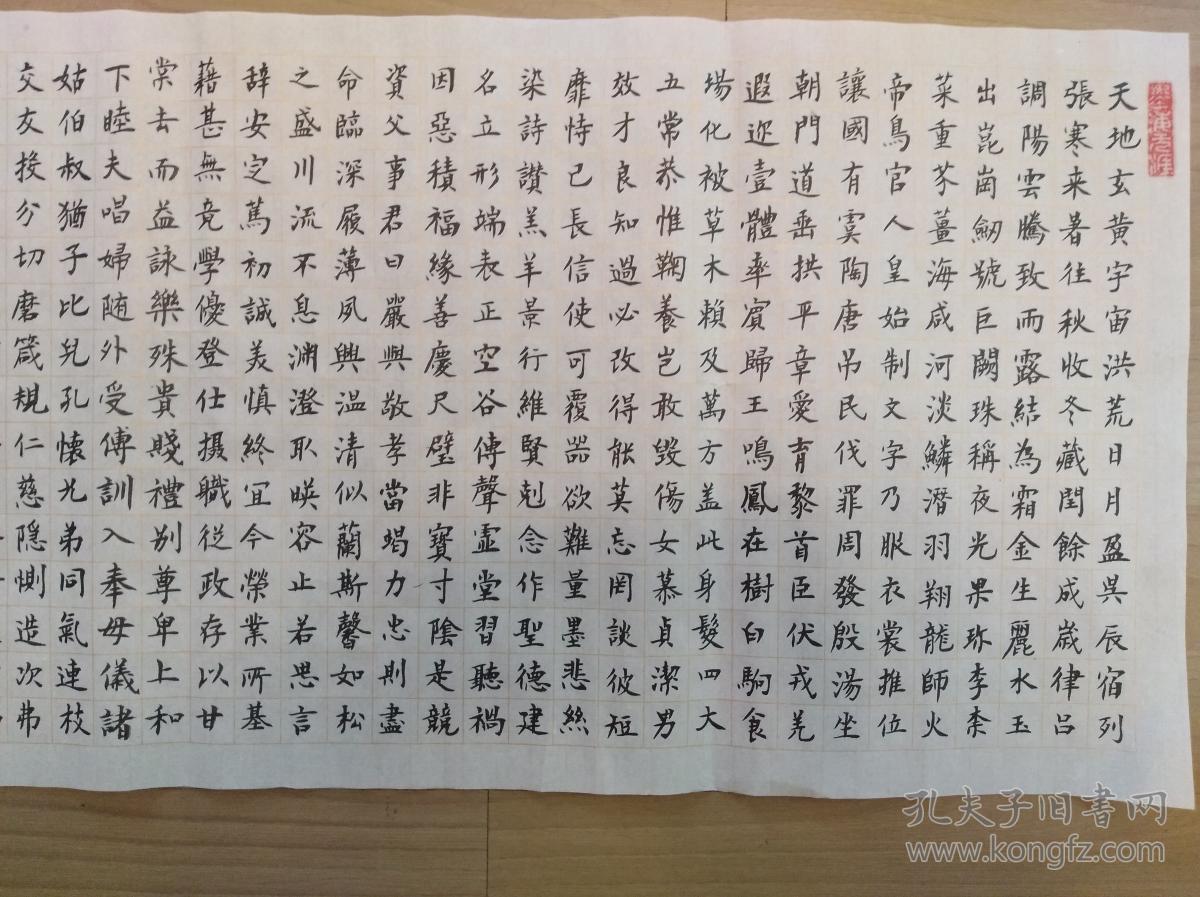 天地玄黄宇宙洪荒日月盈昃辰宿列
張寒来暑往秋收冬藏閏餘成嵗律吕
調陽雲騰致雨露結為霜金生麗水玉
出崑崗劒號巨闕珠稱夜光果珎李柰
菜重芥薑海咸河淡鱗潛羽翔龍師火
帝鳥官人皇始制文字乃服衣裳推位
讓國有虞陶唐吊民伐罪周發殷湯坐
朝門道垂拱平章愛育黎首臣伏戎羌
遐迩壹體率賓歸王鳴鳳在樹白駒食
場化被草木賴及萬方盖此身髮四大
五常恭惟鞠養豈敢毀傷女慕貞潔男
效才良知過必改得能莫忘罔談彼短
靡恃己長信使可覆器欲難量墨悲絲
染詩讃羔羊景行維賢剋念作聖德建
名立形端表正空谷傳聲虛堂習聽禍
因惡積福緣善慶尺璧非寶寸陰是競
資父事君曰嚴與敬孝當竭力忠則盡
命臨深履薄夙興温清似蘭斯馨如松
之盛川流不息淵澄取暎容止若思言
辞安定篤初誠美慎終宜令榮業所基
藉甚無竟學優登仕摄職從政存以甘
棠去而益詠樂殊貴賤禮别尊卑上和
下睦夫唱婦随外受傅訓入奉母儀諸
姑伯叔猶子比兒孔懐兄弟同氣連枝
交友投分切磨箴規仁慈隱惻造次弗
孔夫子旧书网
www.kongfz.com